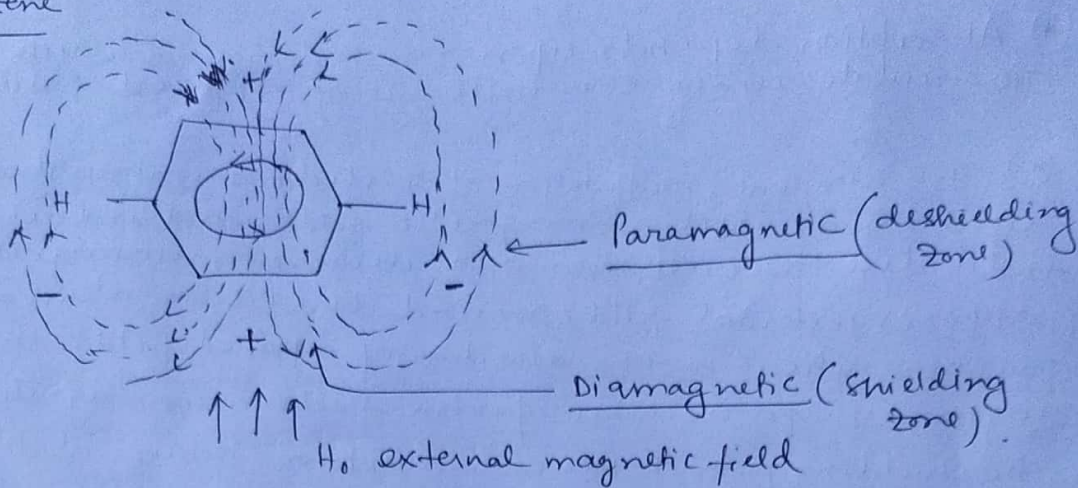 ene
+
H
H
Paramagnetic (deshielding
zone)
-
-
+
Diamagnetic (shielding
zone).
H₀ external magnetic field